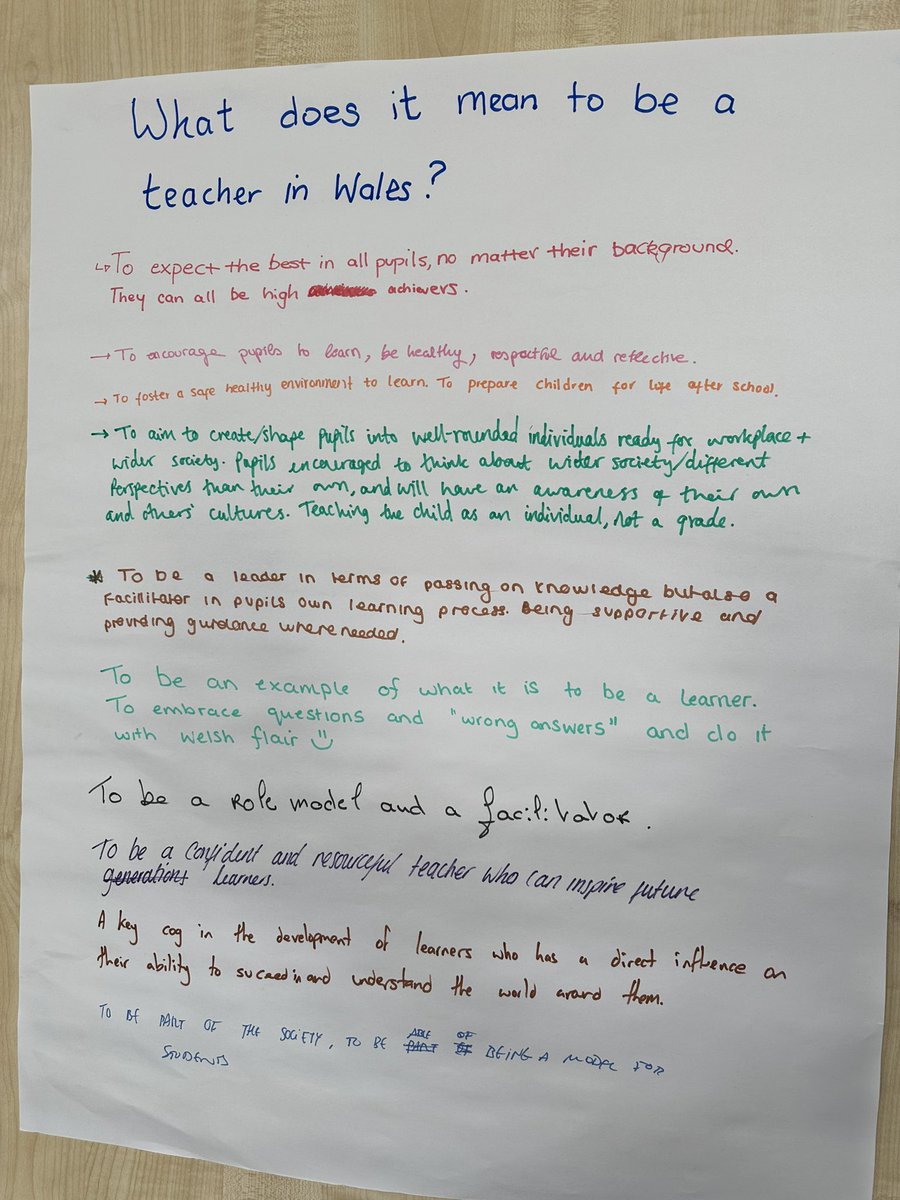 What does it mean to be a
teacher in Wales?
↳ To expect the best in all pupils, no matter their background.
They can all be high achievers.
→ To encourage pupils to learn, be healthy, respectful and reflective.
→ To foster a safe healthy environment to learn. To prepare children for life after school.
→ To aim to create/shape pupils into well-rounded individuals ready for workplace +
wider society. Pupils encouraged to think about wider society/different
Perspectives than their own, and will have an awareness of their own
and others' cultures. Teaching the child as an individual, not a grade.
* To be a leader in terms of passing on knowledge but also a
facillitator in pupils own learning process. Being supportive and
providing guidance where needed.
To be an example of what it is to be a learner.
To embrace questions and "wrong answers" and do it
with welsh flair
To be a role model and a facilitator.
To be a confident and resourceful teacher who can inspire future
generations learners.
A key cog in the development of learners who has a direct influence on
their ability to succeed in and understand the world around them.
TO BE PART OF THE SOCIETY, TO BE PART OF ABLE OF BEING A MODEL FOR
STUDENTS